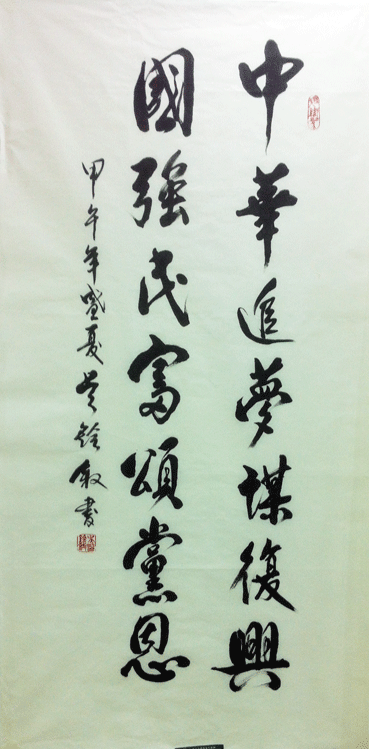 中華追夢謀復興
國強民富頌黨恩
甲午年盛夏吳銓敘書